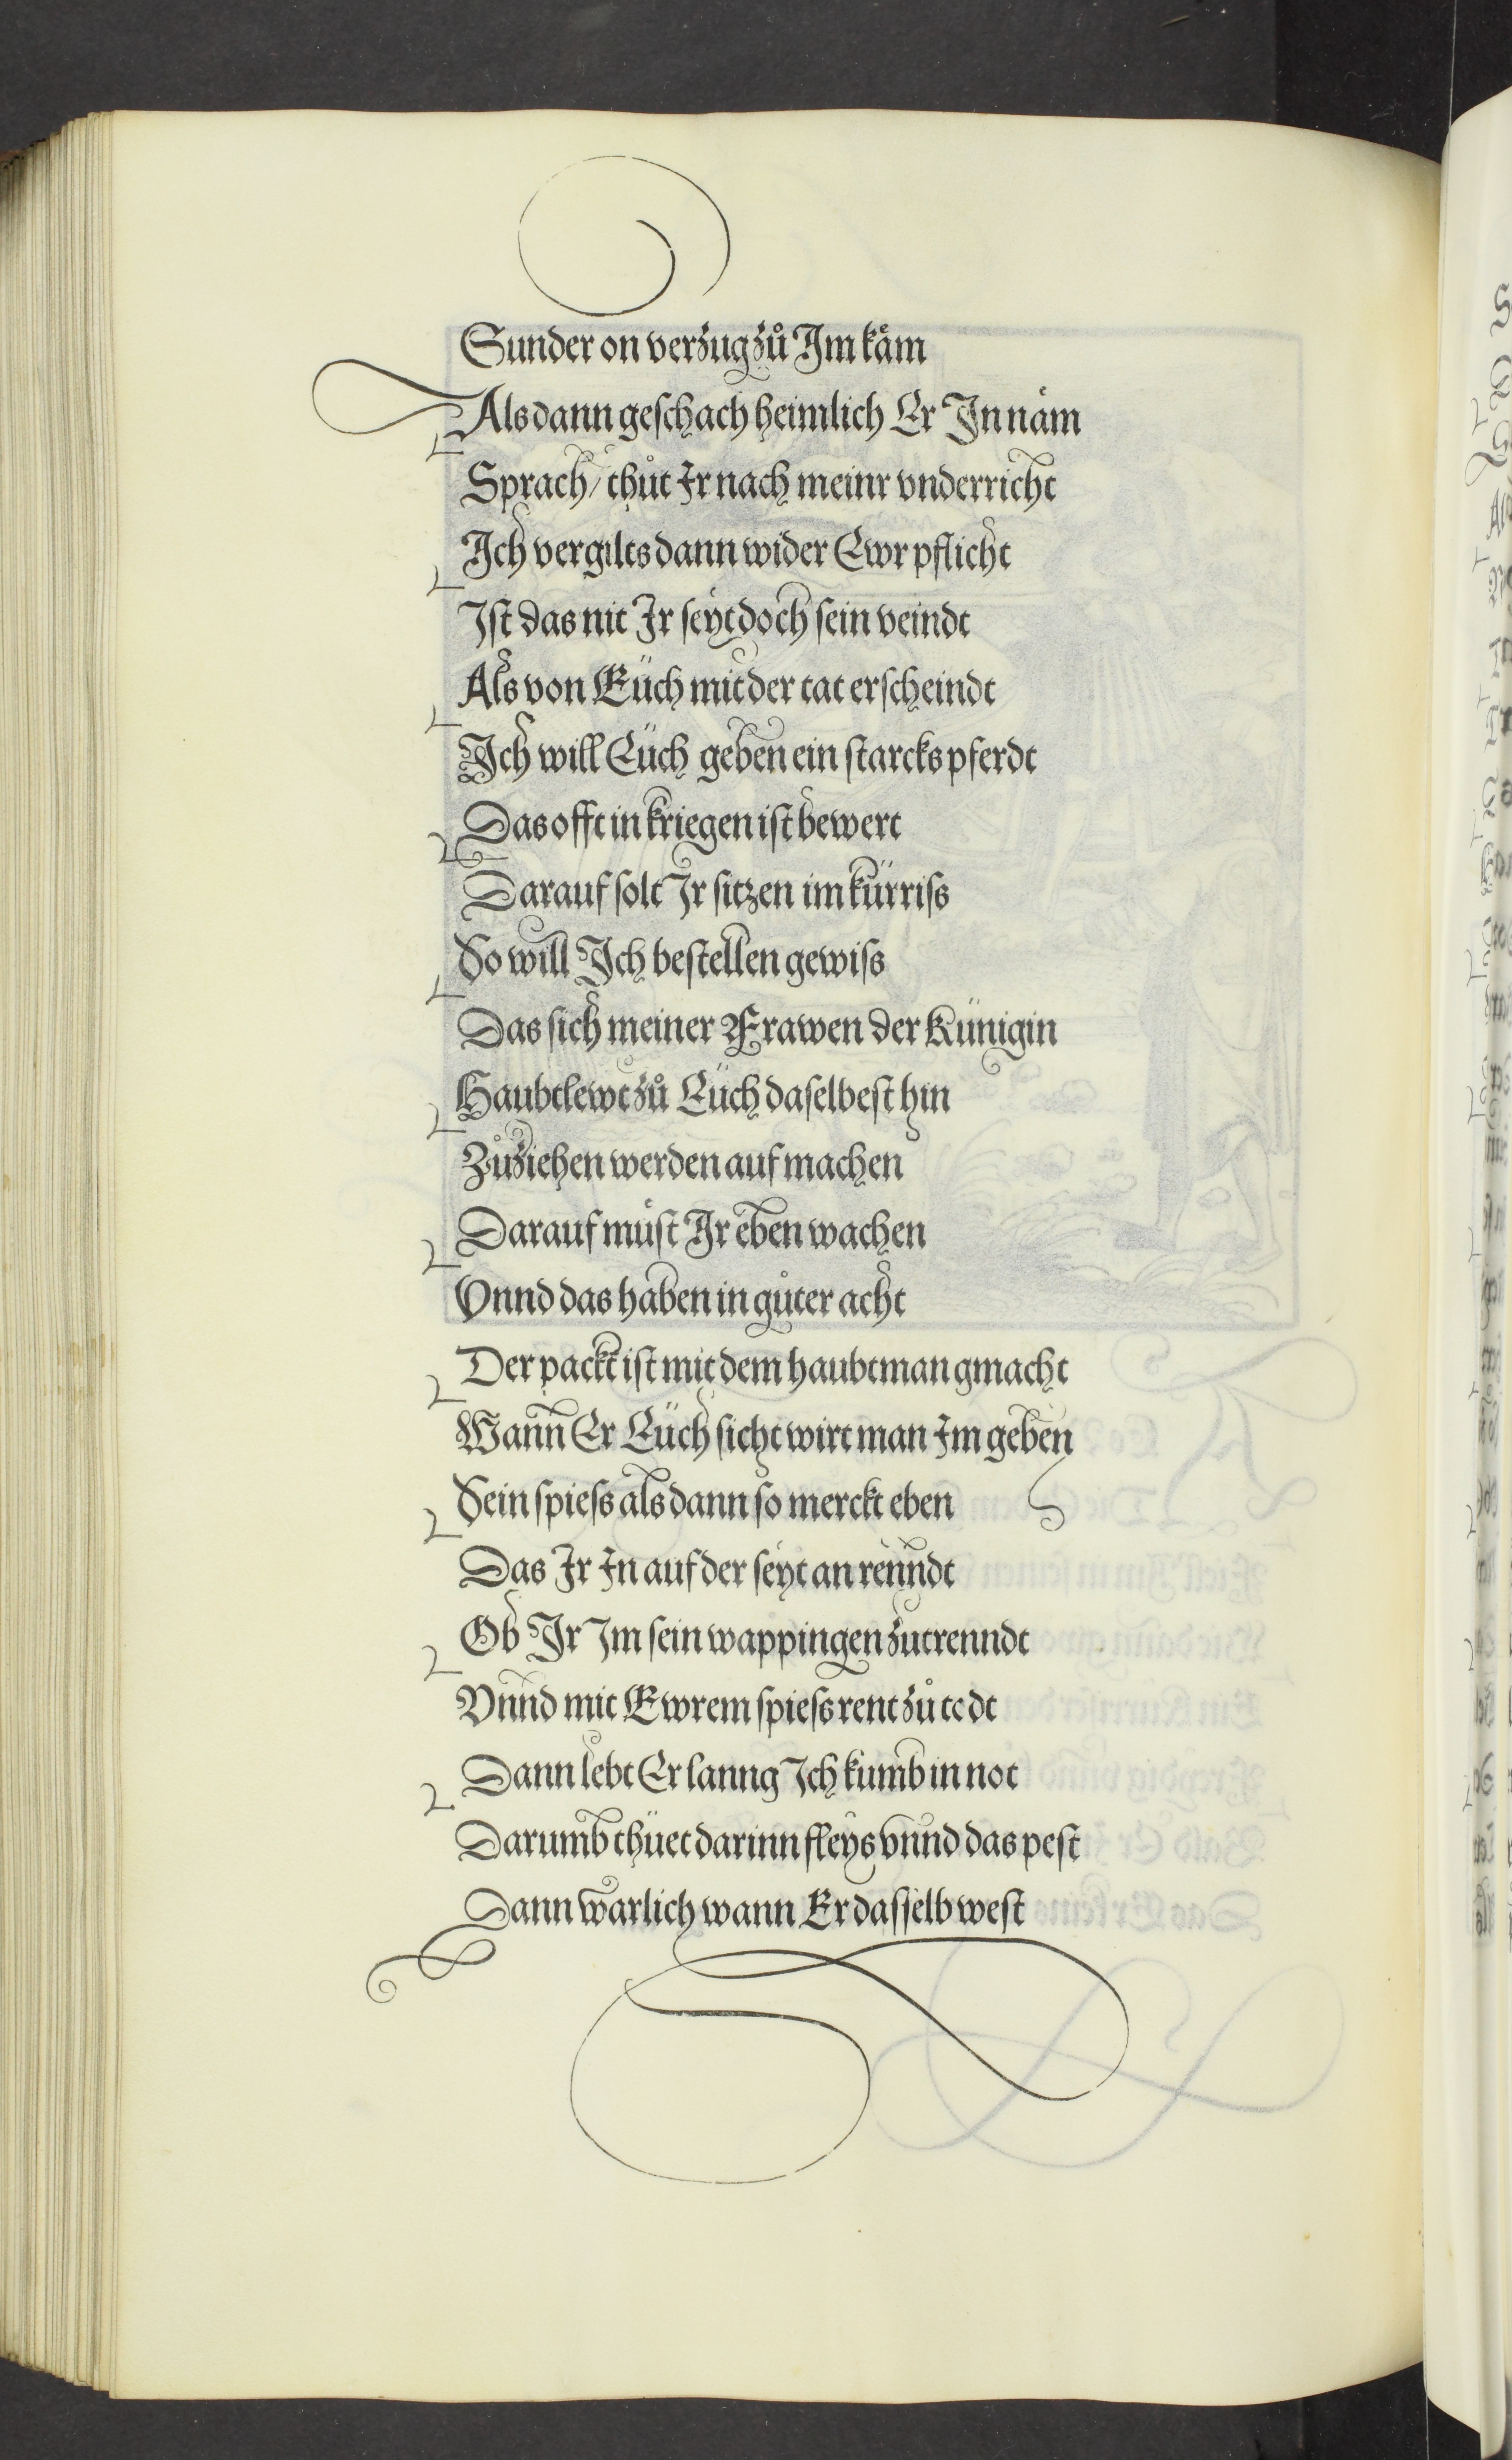 Sunder on verzug zů Im kåm
Als dann geſchach heimlich Er In nåm
Sprach / thůt Ir nach meinr vnderricht
Ich vergilts dann wider Ewr pflicht
Iſt das nit Ir ſeyt doch ſein veindt
Als von Eüch mit der tat erſcheindt
Ich will Eüch geben ein ſtarcks pferdt
Das offt in kriegen iſt bewert
Darauf ſolt Ir ſitzen im kürriſs
So will Ich beſtellen gewiſs
Das ſich meiner Frawen der Künigin
Haubtlewt zů Eüch daſelbeſt hin
Zůziehen werden auf machen
Darauf müſt Ir eben wachen
Vnnd das haben in gůter acht
Der packt iſt mit dem haubtman gmacht
Wann Er Eüch ſicht wirt man Im geben
Sein ſpieſs als dann ſo merckt eben
Das Ir In auf der ſeyt an renndt
Ob Ir Im ſein wappingen zutrenndt
Vnnd mit Ewrem ſpieſs rent zů todt
Dann lebt Er lanng Ich kumb in not
Darumb thüet darinn fleys vnnd das peſt
Dann warlich wann Er daſſelb weſt